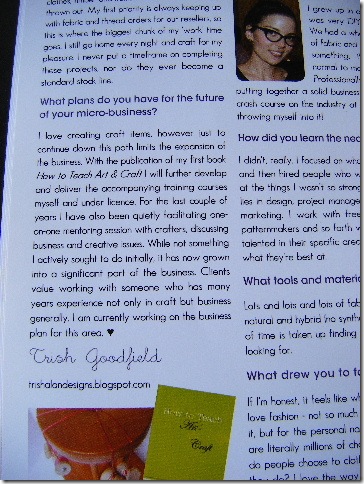 thrown out. My first priority is always keeping up
with fabric and thread orders for our resellers, so
this is where the biggest chunk of my 'work' time
goes. I still go home every night and craft for my
pleasure. I never put a timeframe on completing
these projects, nor do they ever become a
standard stock line.
What plans do you have for the future
of your micro-business?
I love creating craft items, however just to
continue down this path limits the expansion of
the business. With the publication of my first book
How to Teach Art & Craft I will further develop
and deliver the accompanying training courses
myself and under licence. For the last couple of
years I have also been quietly facilitating one-
on-one mentoring session with crafters, discussing
business and creative issues. While not something
I actively sought to do initially, it has now grown
into a significant part of the business. Clients
value working with someone who has many
years experience not only in craft but business
generally. I am currently working on the business
plan for this area. ♥
Trish Goodfield
trishalandesigns.blogspot.com
How to Teach
Art
Craft
I grew up in
was very DIY
We had a wh
of fabric and
something,
normal to me
Professionally
putting together a solid business
crash course on the industry of
throwing myself into it!
How did you learn the nec
I didn't, really. I focused on who
and then hired people who w
at the things I wasn't so strong
lies in design, project manage
marketing. I work with free
patternmakers and so forth w
talented in their specific area
what they're best at.
What tools and materia
Lots and lots and lots of fab
natural and hybrid (no synthe
of time is taken up finding
looking for.
What drew you to fa
If I'm honest, it feels like wh
love fashion - not so much
it, but for the personal na
are literally millions of cho
do people choose to cloth
they do? I love the way